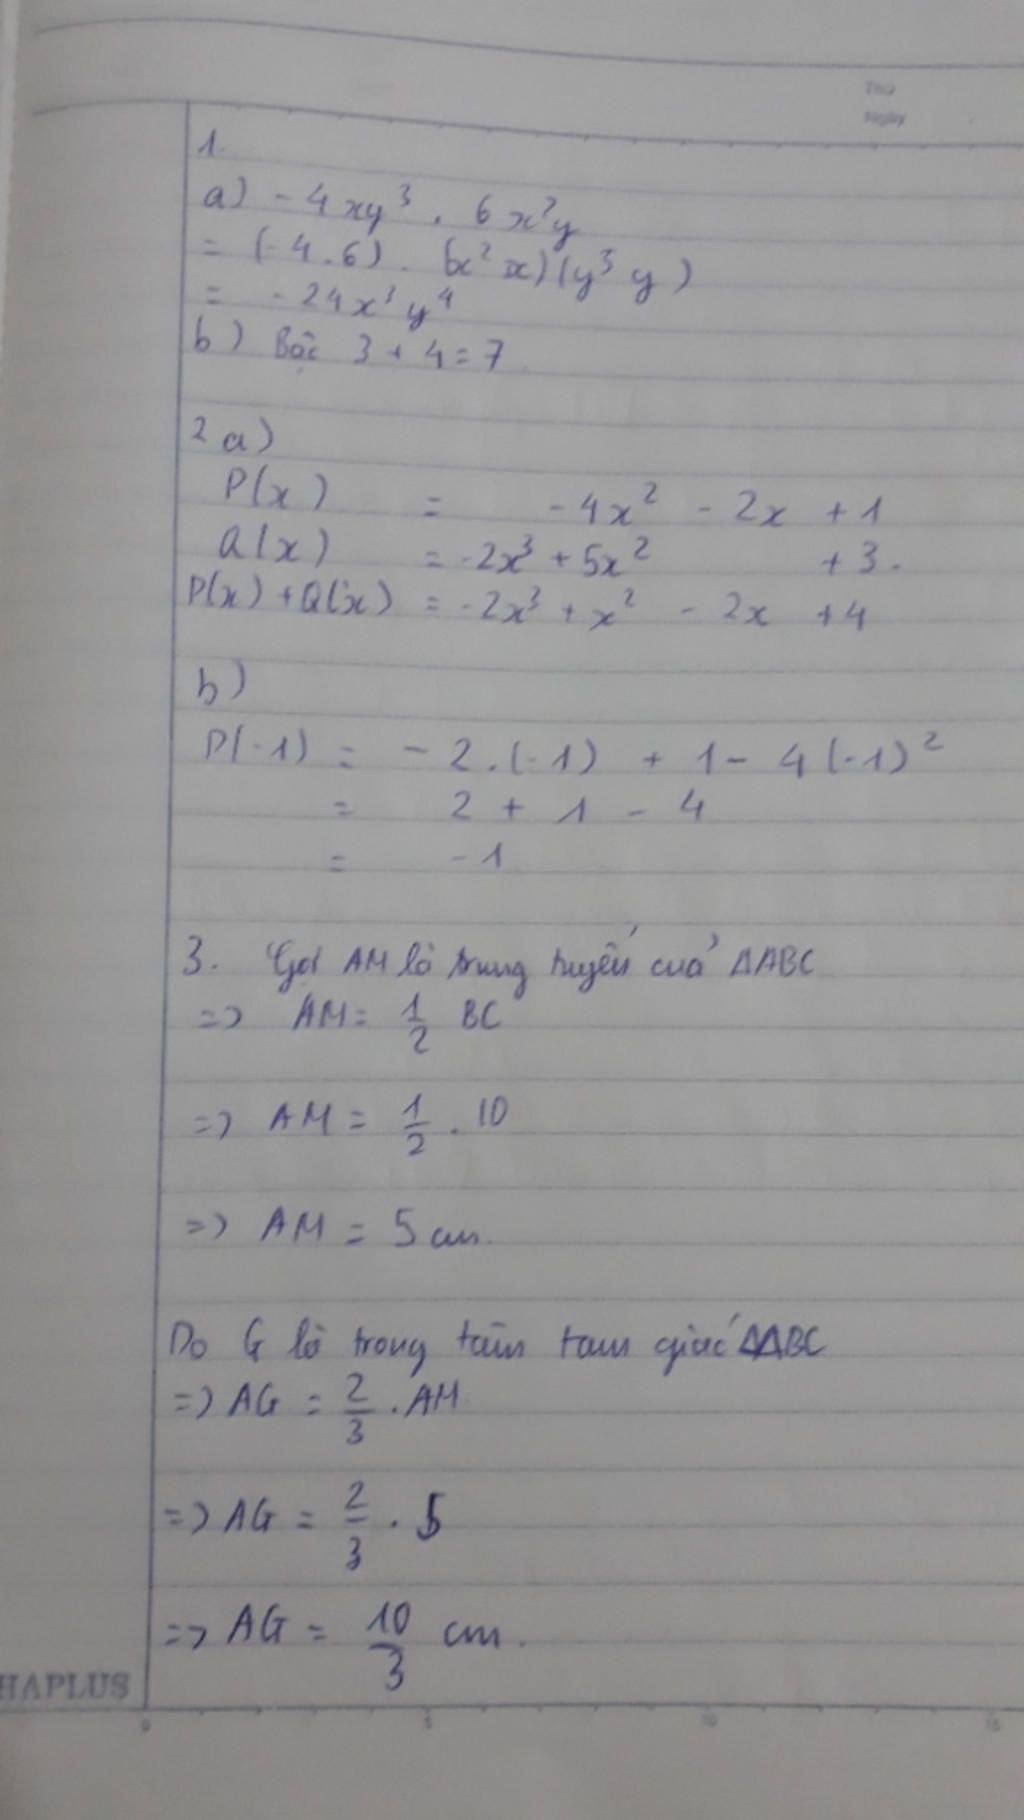 Thứ
Ngày
1.
a) - 4xy³ . 6x²y
= (-4.6) . (x² x)(y³ y)
= -24x³y⁴
b) Bậc 3 + 4 = 7
2 a)
P(x) = -4x² - 2x + 1
Q(x) = -2x³ + 5x² + 3.
P(x) + Q(x) = -2x³ + x² - 2x + 4
b)
P(-1) = - 2.(-1) + 1 - 4(-1)²
= 2 + 1 - 4
= -1
3. Gọi AM là trung tuyến của ΔABC
=> AM = 1/2 BC
=> AM = 1/2 . 10
=> AM = 5 cm.
Do G là trọng tâm tam giác ΔABC
=> AG = 2/3 . AM
=> AG = 2/3 . 5
=> AG = 10/3 cm.
HAPLUS
0 5 10 15